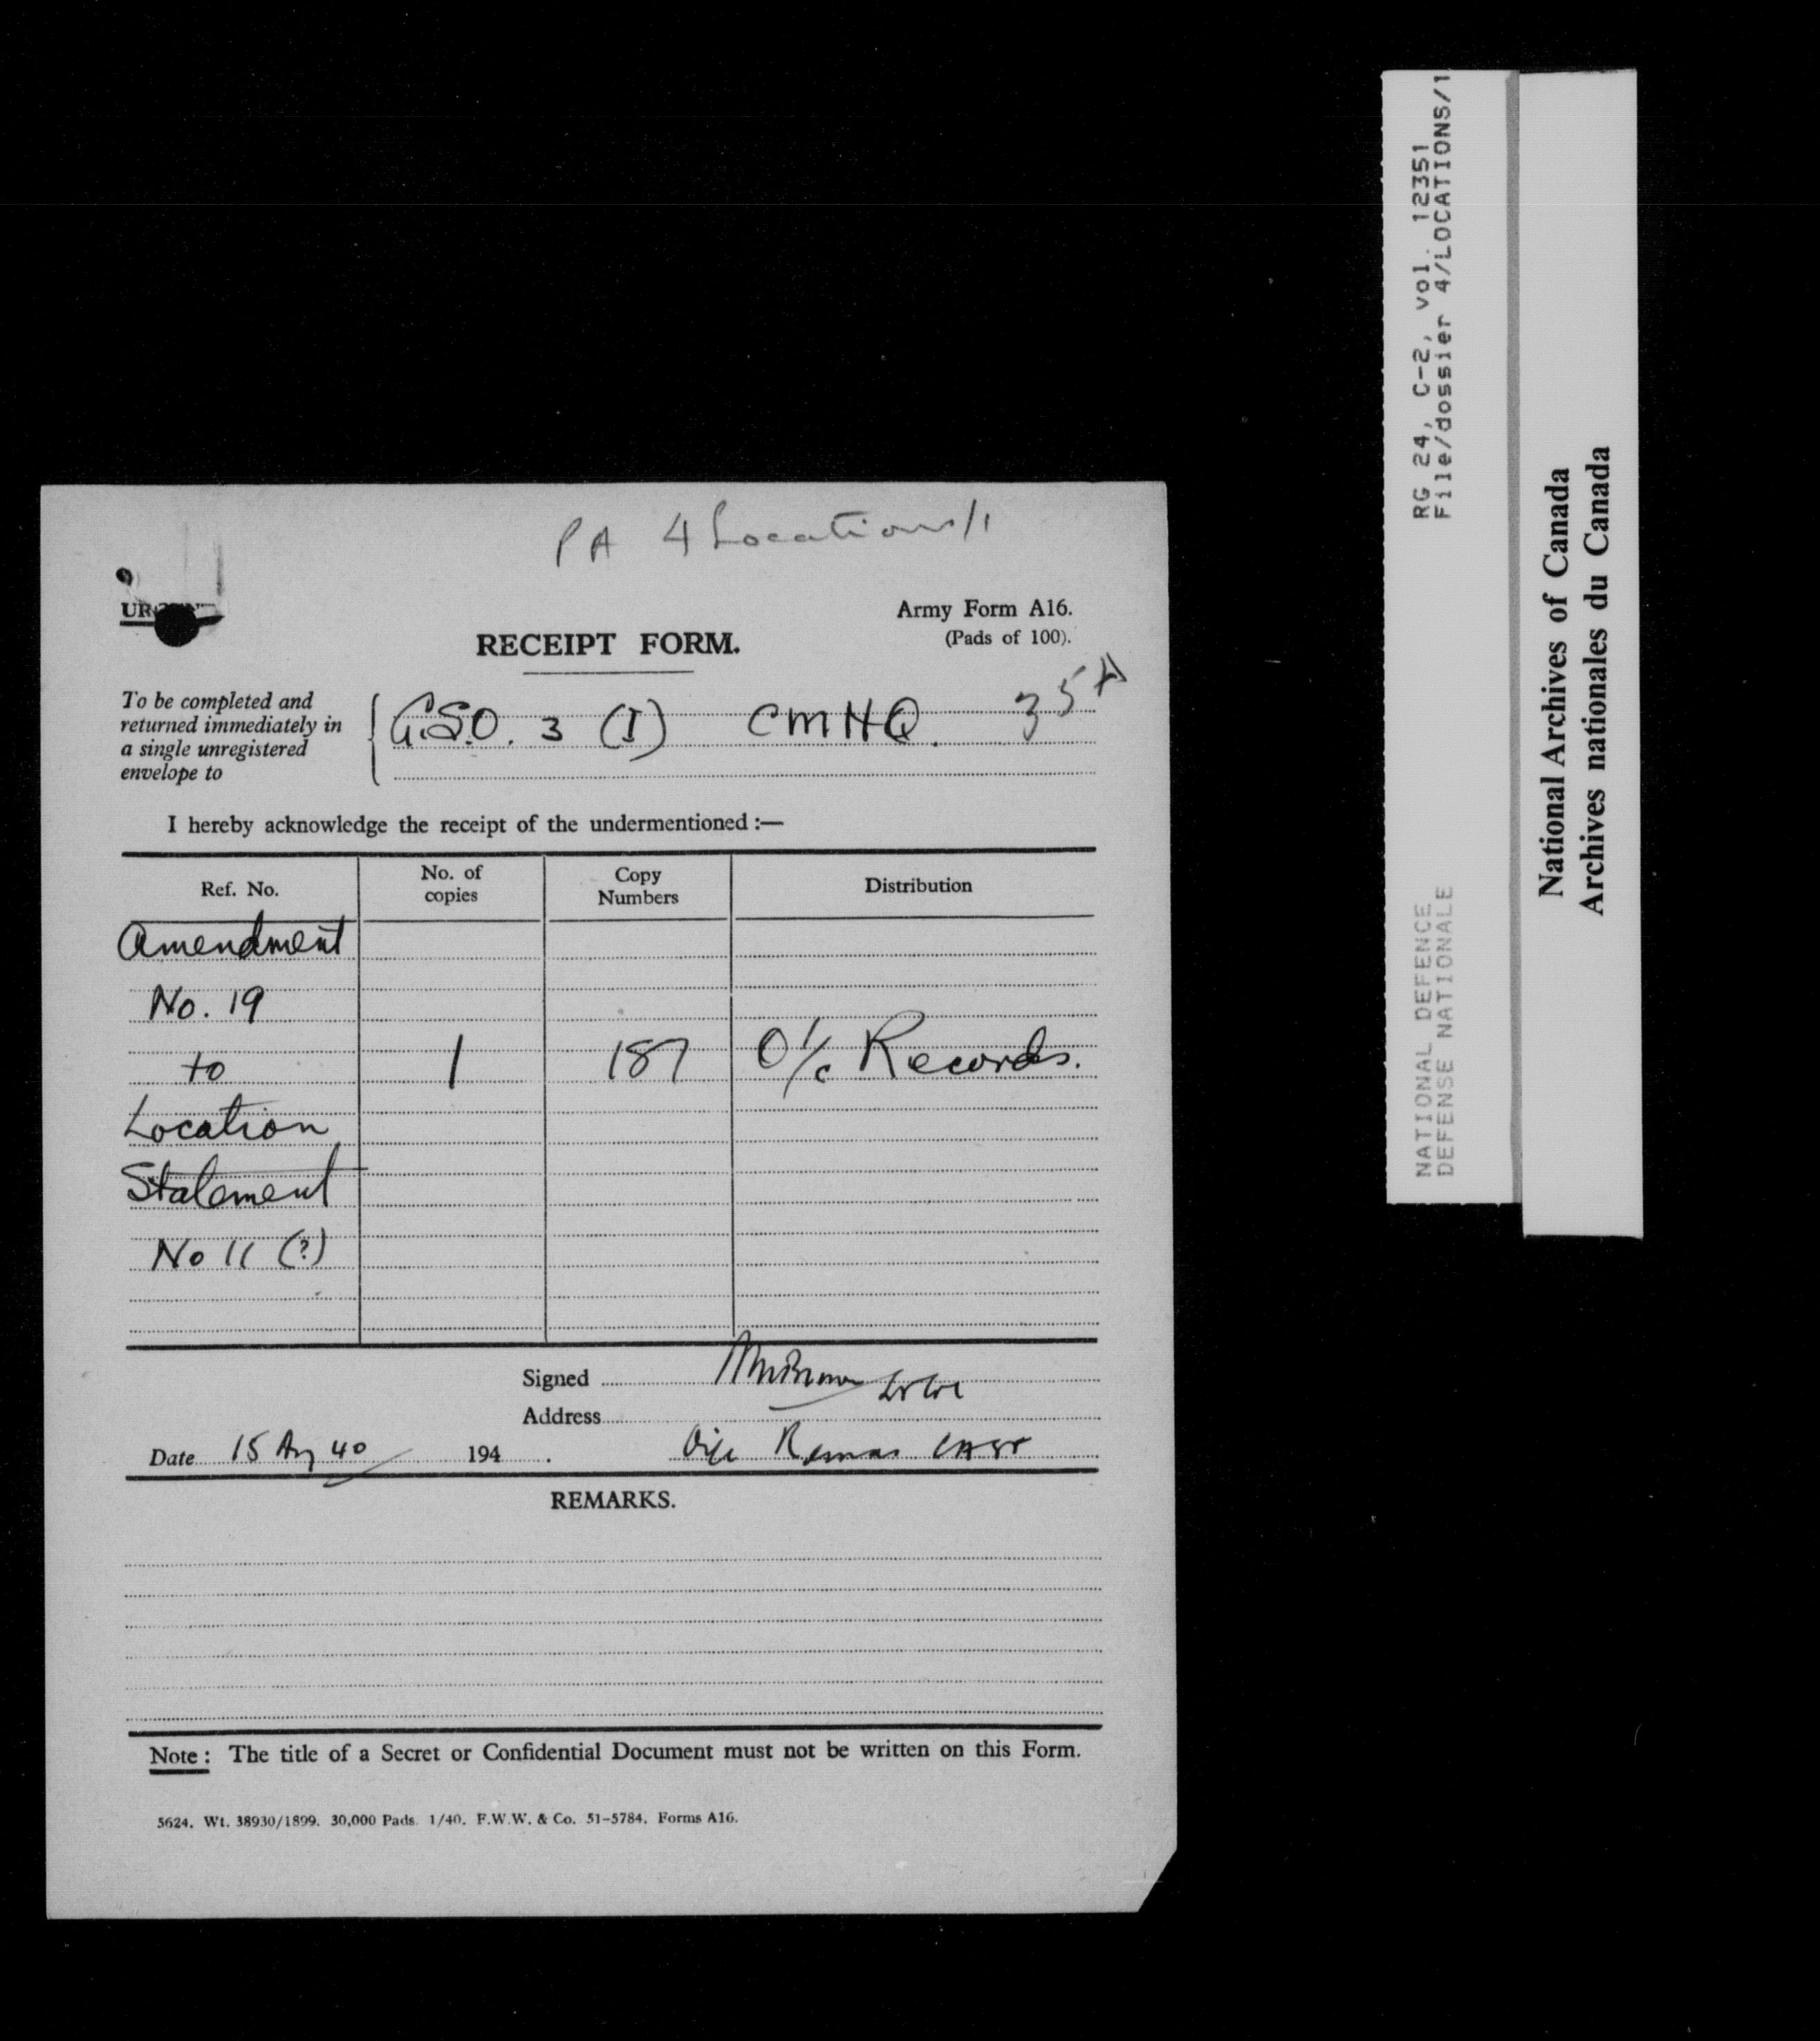 PA 4 Locations/1
Army Form A16.
(Pads of 100).
RECEIPT FORM.
To be completed and
returned immediately in
a single unregistered
envelope to
G.S.O. 3 (I) CMHQ. 35A
I hereby acknowledge the receipt of the undermentioned :—
Ref. No.
No. of
copies
Copy
Numbers
Distribution
Amendment
No. 19
to 1 187 O i/c Records.
Location
Statement
No 11 (?)
Signed
Address
Date 15 Aug 40 194 .
REMARKS.
Note : The title of a Secret or Confidential Document must not be written on this Form.
5624. Wt. 38930/1899. 30,000 Pads. 1/40. F.W.W. & Co. 51-5784. Forms A16.
RG 24, C-2, vol. 12351
File/dossier 4/LOCATIONS/1
NATIONAL DEFENCE
DEFENSE NATIONALE
National Archives of Canada
Archives nationales du Canada